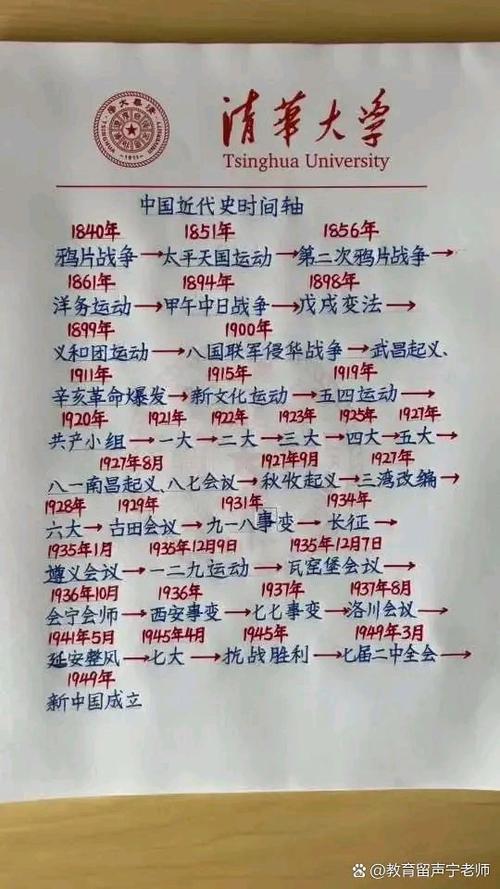 清华大学
Tsinghua University
中国近代史时间轴
1840年 1851年 1856年
鸦片战争→太平天国运动→第二次鸦片战争→
1861年 1894年 1898年
洋务运动→甲午中日战争→戊戌变法→
1899年 1900年
义和团运动→八国联军侵华战争→武昌起义、
1911年 1915年 1919年
辛亥革命爆发→新文化运动→五四运动→
1920年 1921年 1922年 1923年 1925年 1927年
共产小组→一大→二大→三大→四大→五大→
1927年8月 1927年9月 1927年
八一南昌起义、八七会议→秋收起义→三湾改编→
1928年 1929年 1931年 1934年
六大→古田会议→九一八事变→长征→
1935年1月 1935年12月9日 1935年12月7日
遵义会议→一二九运动→瓦窑堡会议→
1936年10月 1936年 1937年 1937年8月
会宁会师→西安事变→七七事变→洛川会议→
1941年5月 1945年4月 1945年 1949年3月
延安整风→七大→抗战胜利→七届二中全会→
1949年
新中国成立
头条@教育留声宁老师